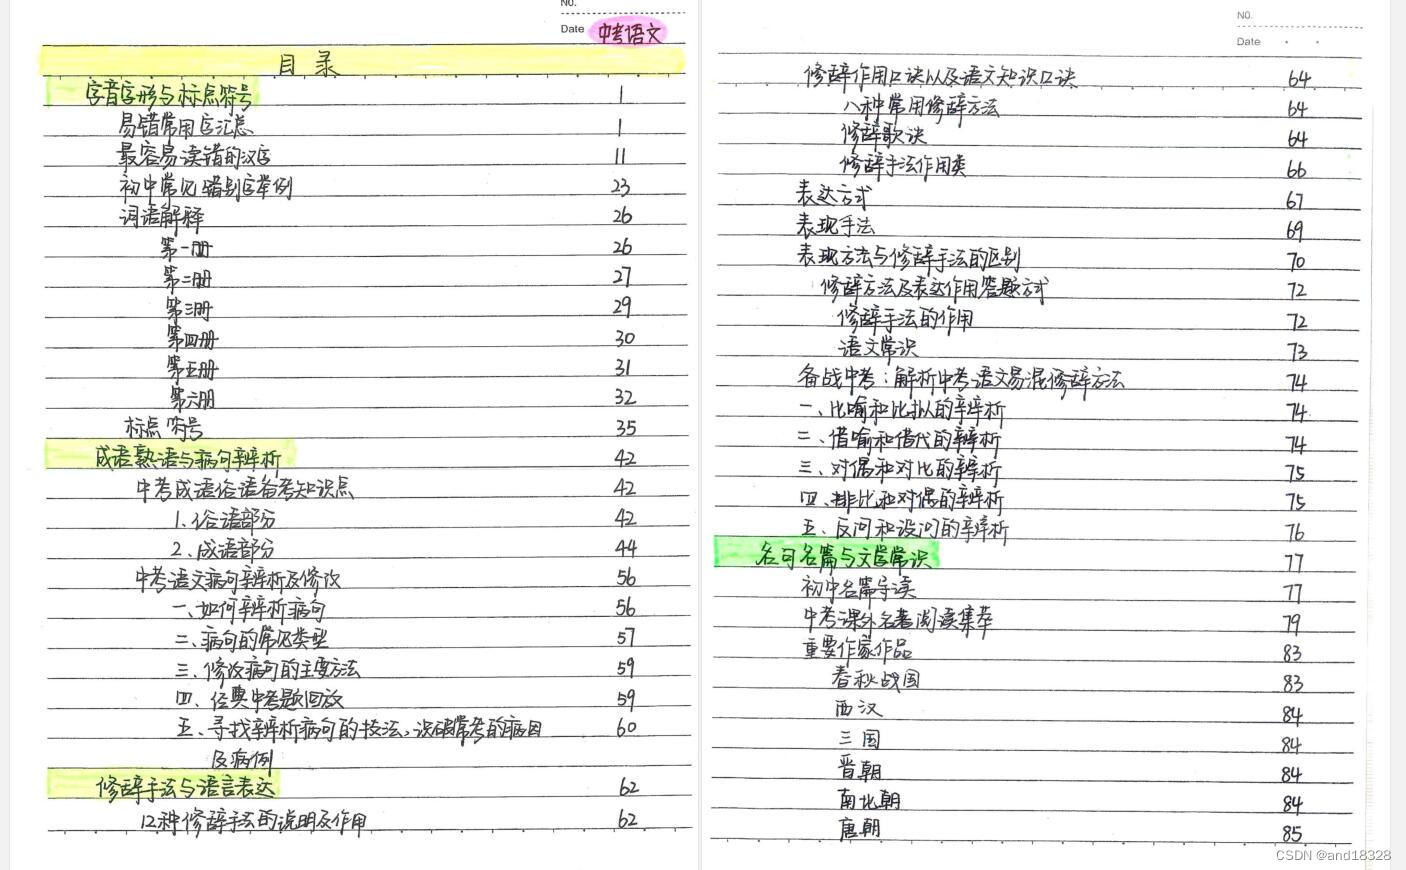 NO.
Date 中考语文
目录
字音字形与标点符号 1
易错常用字汇总 1
最容易读错的汉字 11
初中常见错别字举例 23
词语解释 26
第一册 26
第二册 27
第三册 29
第四册 30
第五册 31
第六册 32
标点符号 35
成语熟语与病句辨析 42
中考成语俗语备考知识点 42
1、俗语部分 42
2、成语部分 44
中考语文病句辨析及修改 56
一、如何辨析病句 56
二、病句的常见类型 57
三、修改病句的主要方法 59
四、经典中考题回放 59
五、寻找辨析病句的技法,识破常考的病因 60
及病例
修辞手法与语言表达 62
12种修辞手法的说明及作用 62
NO.
Date
修辞作用口诀以及语文知识口诀 64
八种常用修辞方法 64
修辞歌诀 64
修辞手法作用类 66
表达方式 67
表现手法 69
表现方法与修辞手法的区别 70
修辞方法及表达作用答题方式 72
修辞手法的作用 72
语文常识 73
备战中考:解析中考语文易混修辞方法 74
一、比喻和比拟的辨析 74
二、借喻和借代的辨析 74
三、对偶和对比的辨析 75
四、排比和对偶的辨析 75
五、反问和设问的辨析 76
名句名篇与文学常识 77
初中名篇导读 77
中考课外名著阅读集萃 79
重要作家作品 83
春秋战国 83
西汉 84
三国 84
晋朝 84
南北朝 84
唐朝 85
CSDN @and18328